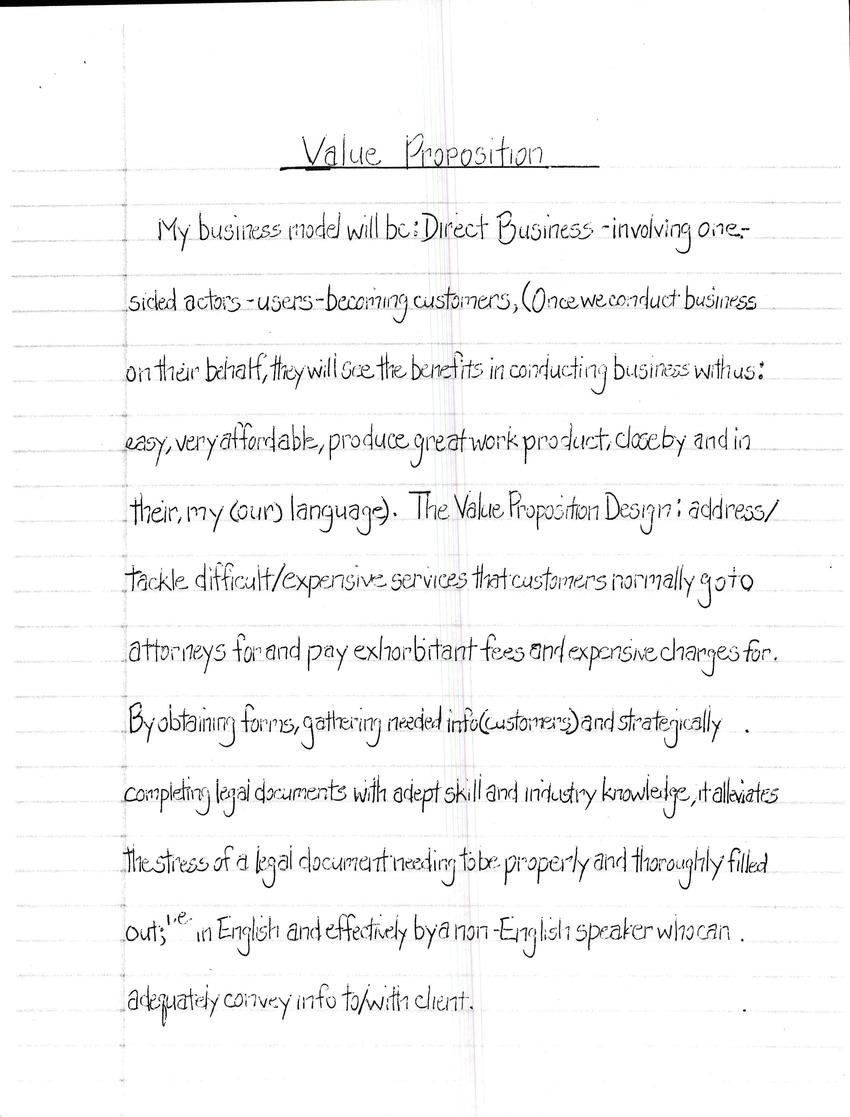 Value Proposition
My business model will be: Direct Business - involving one-
sided actors - users - becoming customers, (Once we conduct business
on their behalf, they will see the benefits in conducting business with us:
easy, very affordable, produce great work product, close by and in
their, my (our) language). The Value Proposition Design: address/
tackle difficult/expensive services that customers normally go to
attorneys for and pay exhorbitant fees and expensive charges for.
By obtaining forms, gathering needed info (customers) and strategically
completing legal documents with adept skill and industry knowledge, it alleviates
the stress of a legal document needing to be properly and thoroughly filled
out; i.e. in English and effectively by a non-English speaker who can
adequately convey info to/with client.